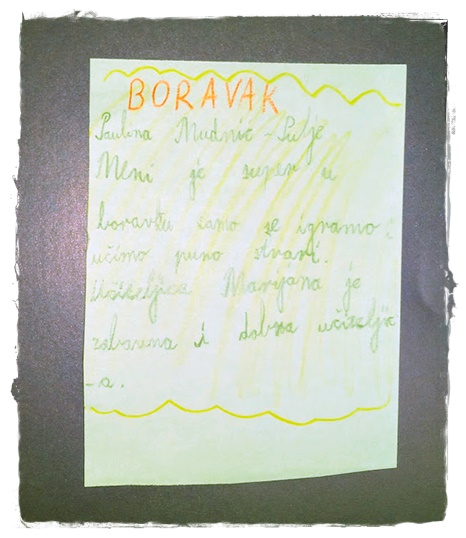 BORAVAK
Paulina Mudnić - Pulje
Meni je super u
boravku samo se igramo i
učimo puno stvari.
Učiteljica Marijana je
zabavna i dobra učiteljic
-a.